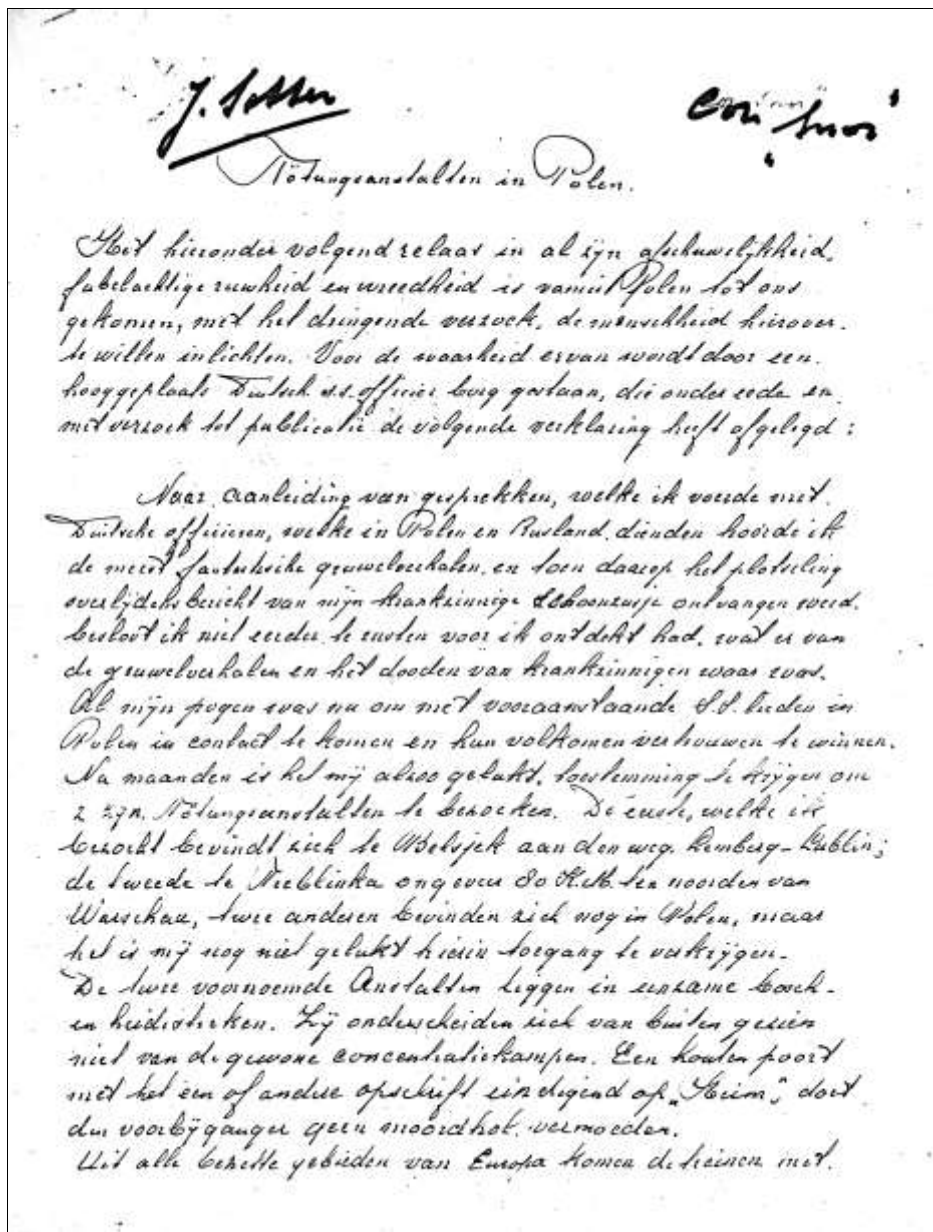 J.
Tötungsanstalten in Polen.
Het hieronder volgend relaas in al zijn afschuwelijkheid,
fabelachtige ruwheid en wreedheid is vanuit Polen tot ons
gekomen, met het dringende verzoek, de menschheid hierover
te willen inlichten. Voor de waarheid ervan wordt door een
hooggeplaats Duitsch s.s. officier borg gestaan, die onder eede en
met verzoek tot publicatie de volgende verklaring heeft afgelegd:
Naar aanleiding van gesprekken, welke ik voerde met
Duitsche officieren, welke in Polen en Rusland dienden hoorde ik
de meest fantastische gruwelverhalen, en toen daarop het plotseling
overlijdensbericht van mijn krankzinnige schoonzusje ontvangen werd,
besloot ik niet eerder te rusten voor ik ontdekt had, wat er van
de gruwelverhalen en het dooden van krankzinnigen waar was.
Al mijn pogen was nu om met vooraanstaande S.S. lieden in
Polen in contact te komen en hun volkomen vertrouwen te winnen.
Na maanden is het mij alzoo gelukt, toestemming te krijgen om
2 zgn. Tötungsanstalten te bezoeken. De eerste, welke ik
bezocht bevindt zich te Belsjek aan den weg Lemberg-Lublin;
de tweede te Treblinka ongeveer 80 K.M. ten noorden van
Warschau, twee anderen bevinden zich nog in Polen, maar
het is mij nog niet gelukt hierin toegang te verkrijgen.
De twee voornoemde Anstalten liggen in eenzame bosch-
en heidestreken. Zij onderscheiden zich van buiten gezien
niet van de gewone concentratiekampen. Een houten poort
met het een of andere opschrift eindigend op „Heim", doet
den voorbijganger geen moordhol vermoeden.
Uit alle bezette gebieden van Europa komen de treinen met